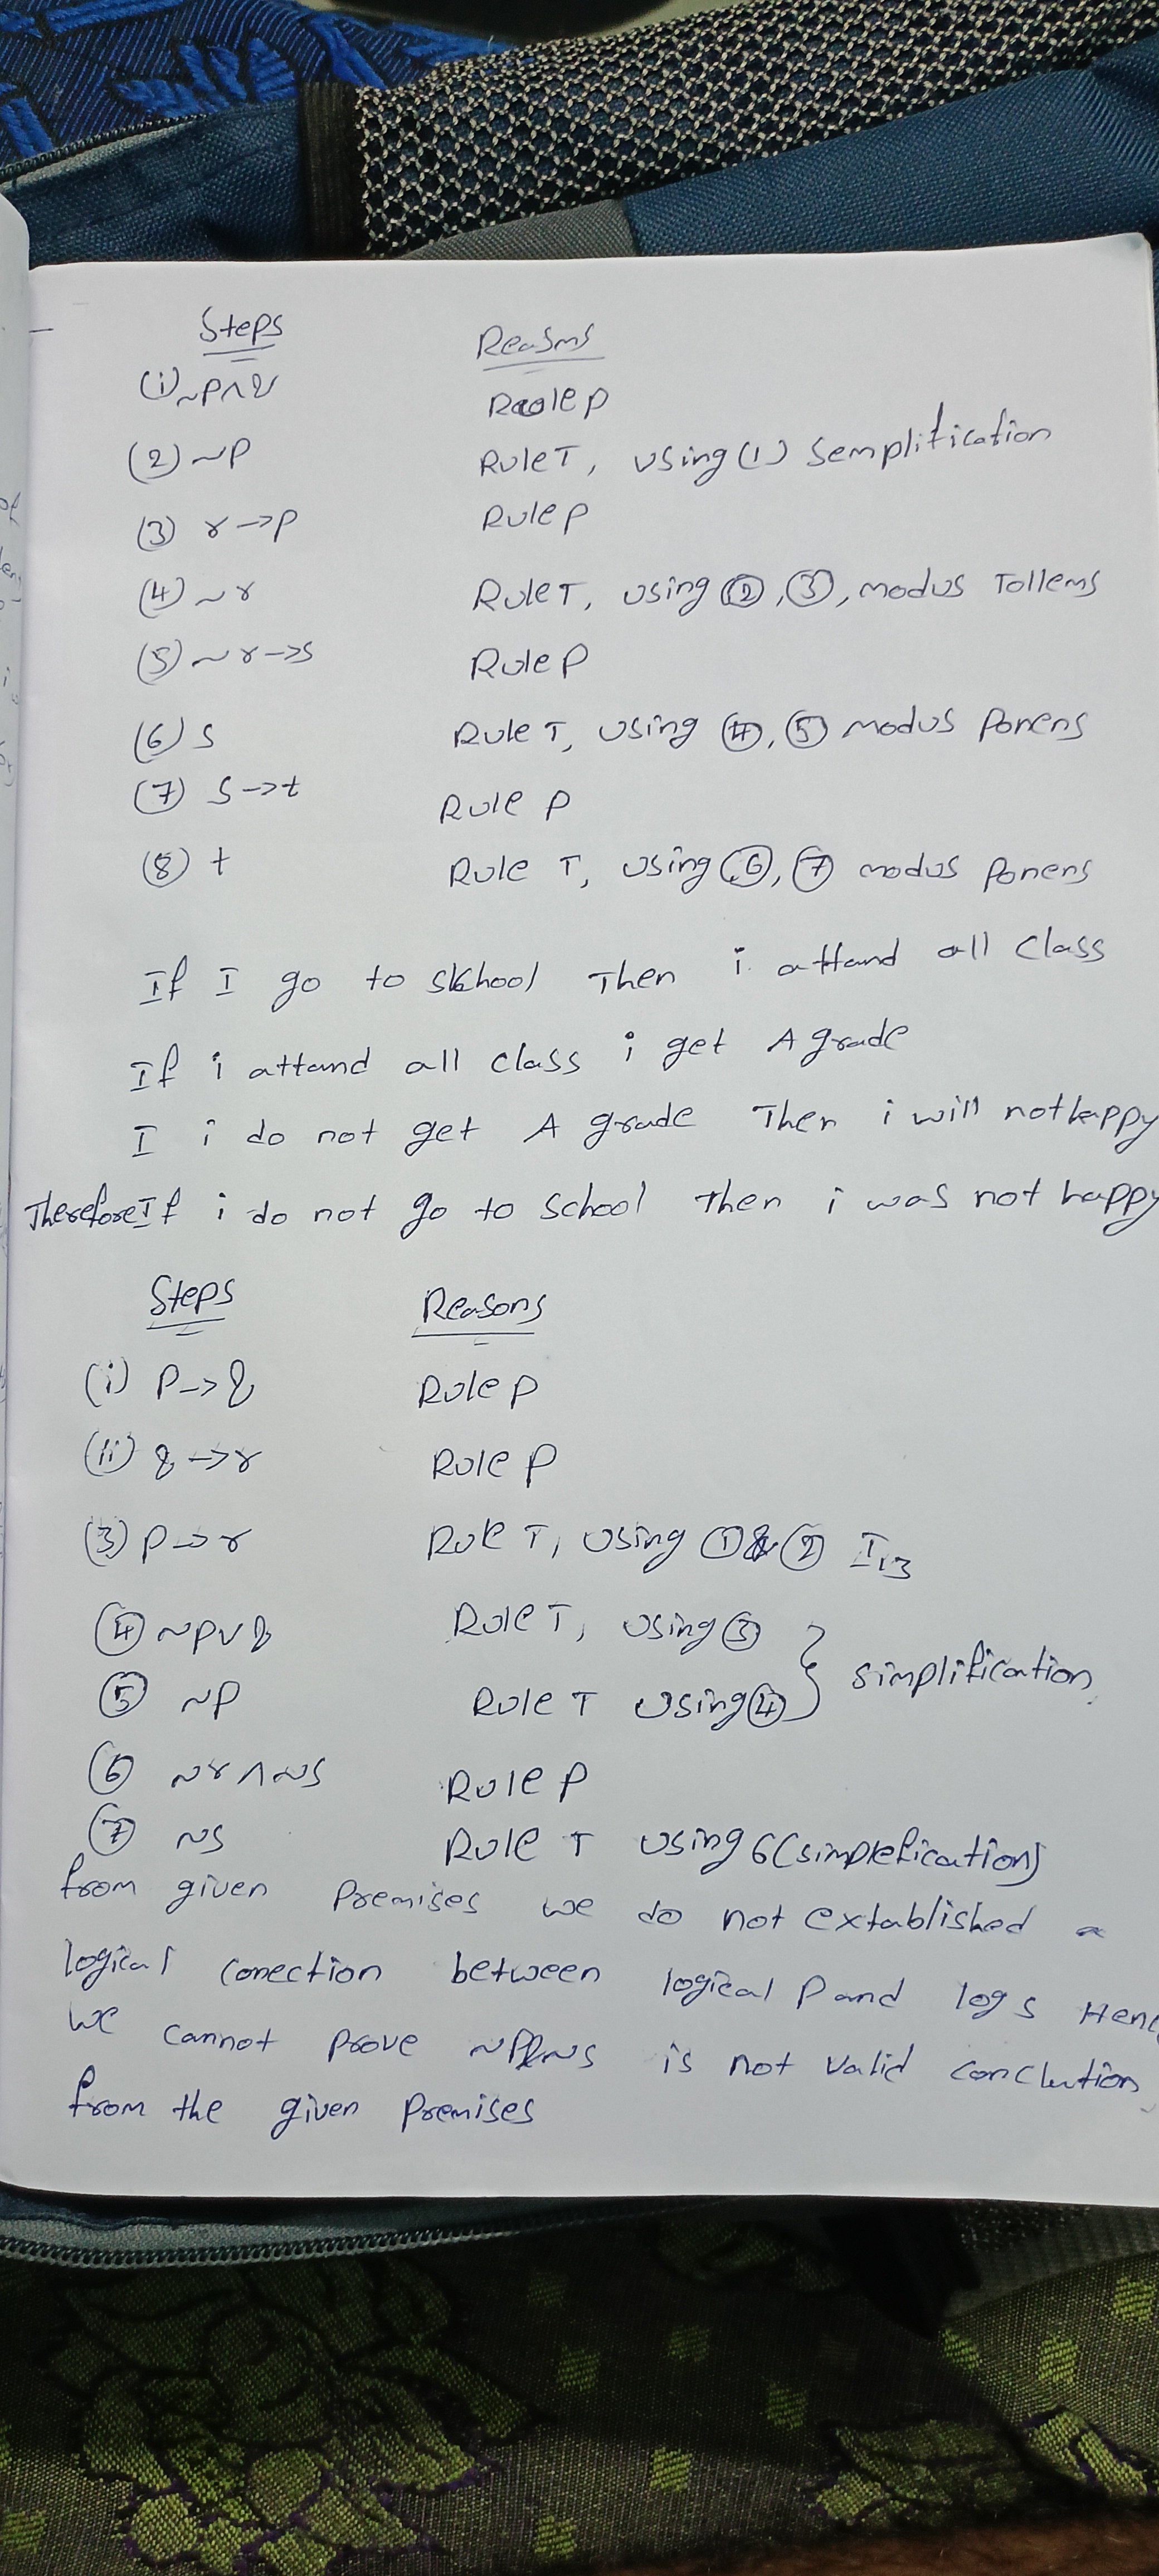 Steps Reasons
(i) ~p∧q Roolep
(2) ~p RuleT, using (1) Semplification
(3) r→p Rulep
(4) ~r RuleT, using ②, ③, modus Tollems
(5) ~r→s Rulep
(6) s Rule T, using ④, ⑤ modus Ponens
(7) s→t Rule p
(8) t Rule T, using ⑥, ⑦ modus Ponens
If I go to skhool Then i attand all class
If i attand all class i get A grade
I i do not get A grade Then i will not happy
Therefore If i do not go to school then i was not happy
Steps Reasons
(i) p→q Rule p
(ii) q→r Rule p
(3) p→r Rule T, using ①&② I13
④ ~p∨q Rule T, using ③ } simplification
⑤ ~p Rule T using ④
⑥ ~r∧~s Rule p
⑦ ~s Rule T using 6 (simplefication)
from given Premises we do not extablished a
logical conection between logical p and log s Henc
we cannot prove is not valid conclution
from the given premises